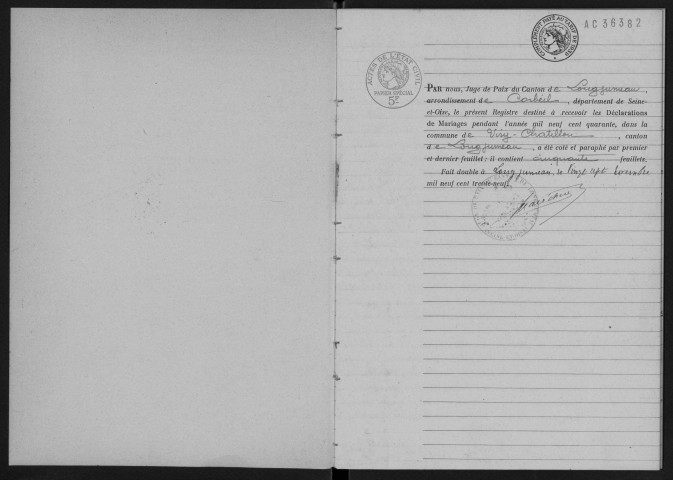 AC 36362
COMPLÉMENT PAYÉ AU TARIF DE 1939
ACTES DE L'ÉTAT CIVIL
PAPIER SPÉCIAL
5F
PAR nous, Juge de Paix du Canton de Longjumeau,
arrondissement de Corbeil, département de Seine-
et-Oise, le présent Registre destiné à recevoir les Déclarations
de Mariages pendant l'année mil neuf cent quarante, dans la
commune de Viry-Chatillon, canton
de Longjumeau, a été coté et paraphé par premier
et dernier feuillet; il contient cinquante feuillets.
Fait double à Longjumeau, le Vingt sept Novembre
mil neuf cent trente neuf